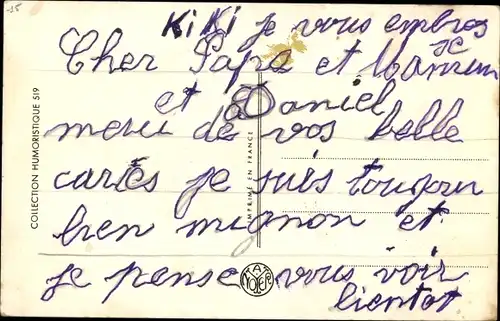 KiKi je vous embras
Cher Papa et Maman je
et à Daniel
merci de vos belle
cartes je suis toujour
bien mignon et
je pense vous voir
bientot
COLLECTION HUMORISTIQUE 519
IMPRIMÉ EN FRANCE